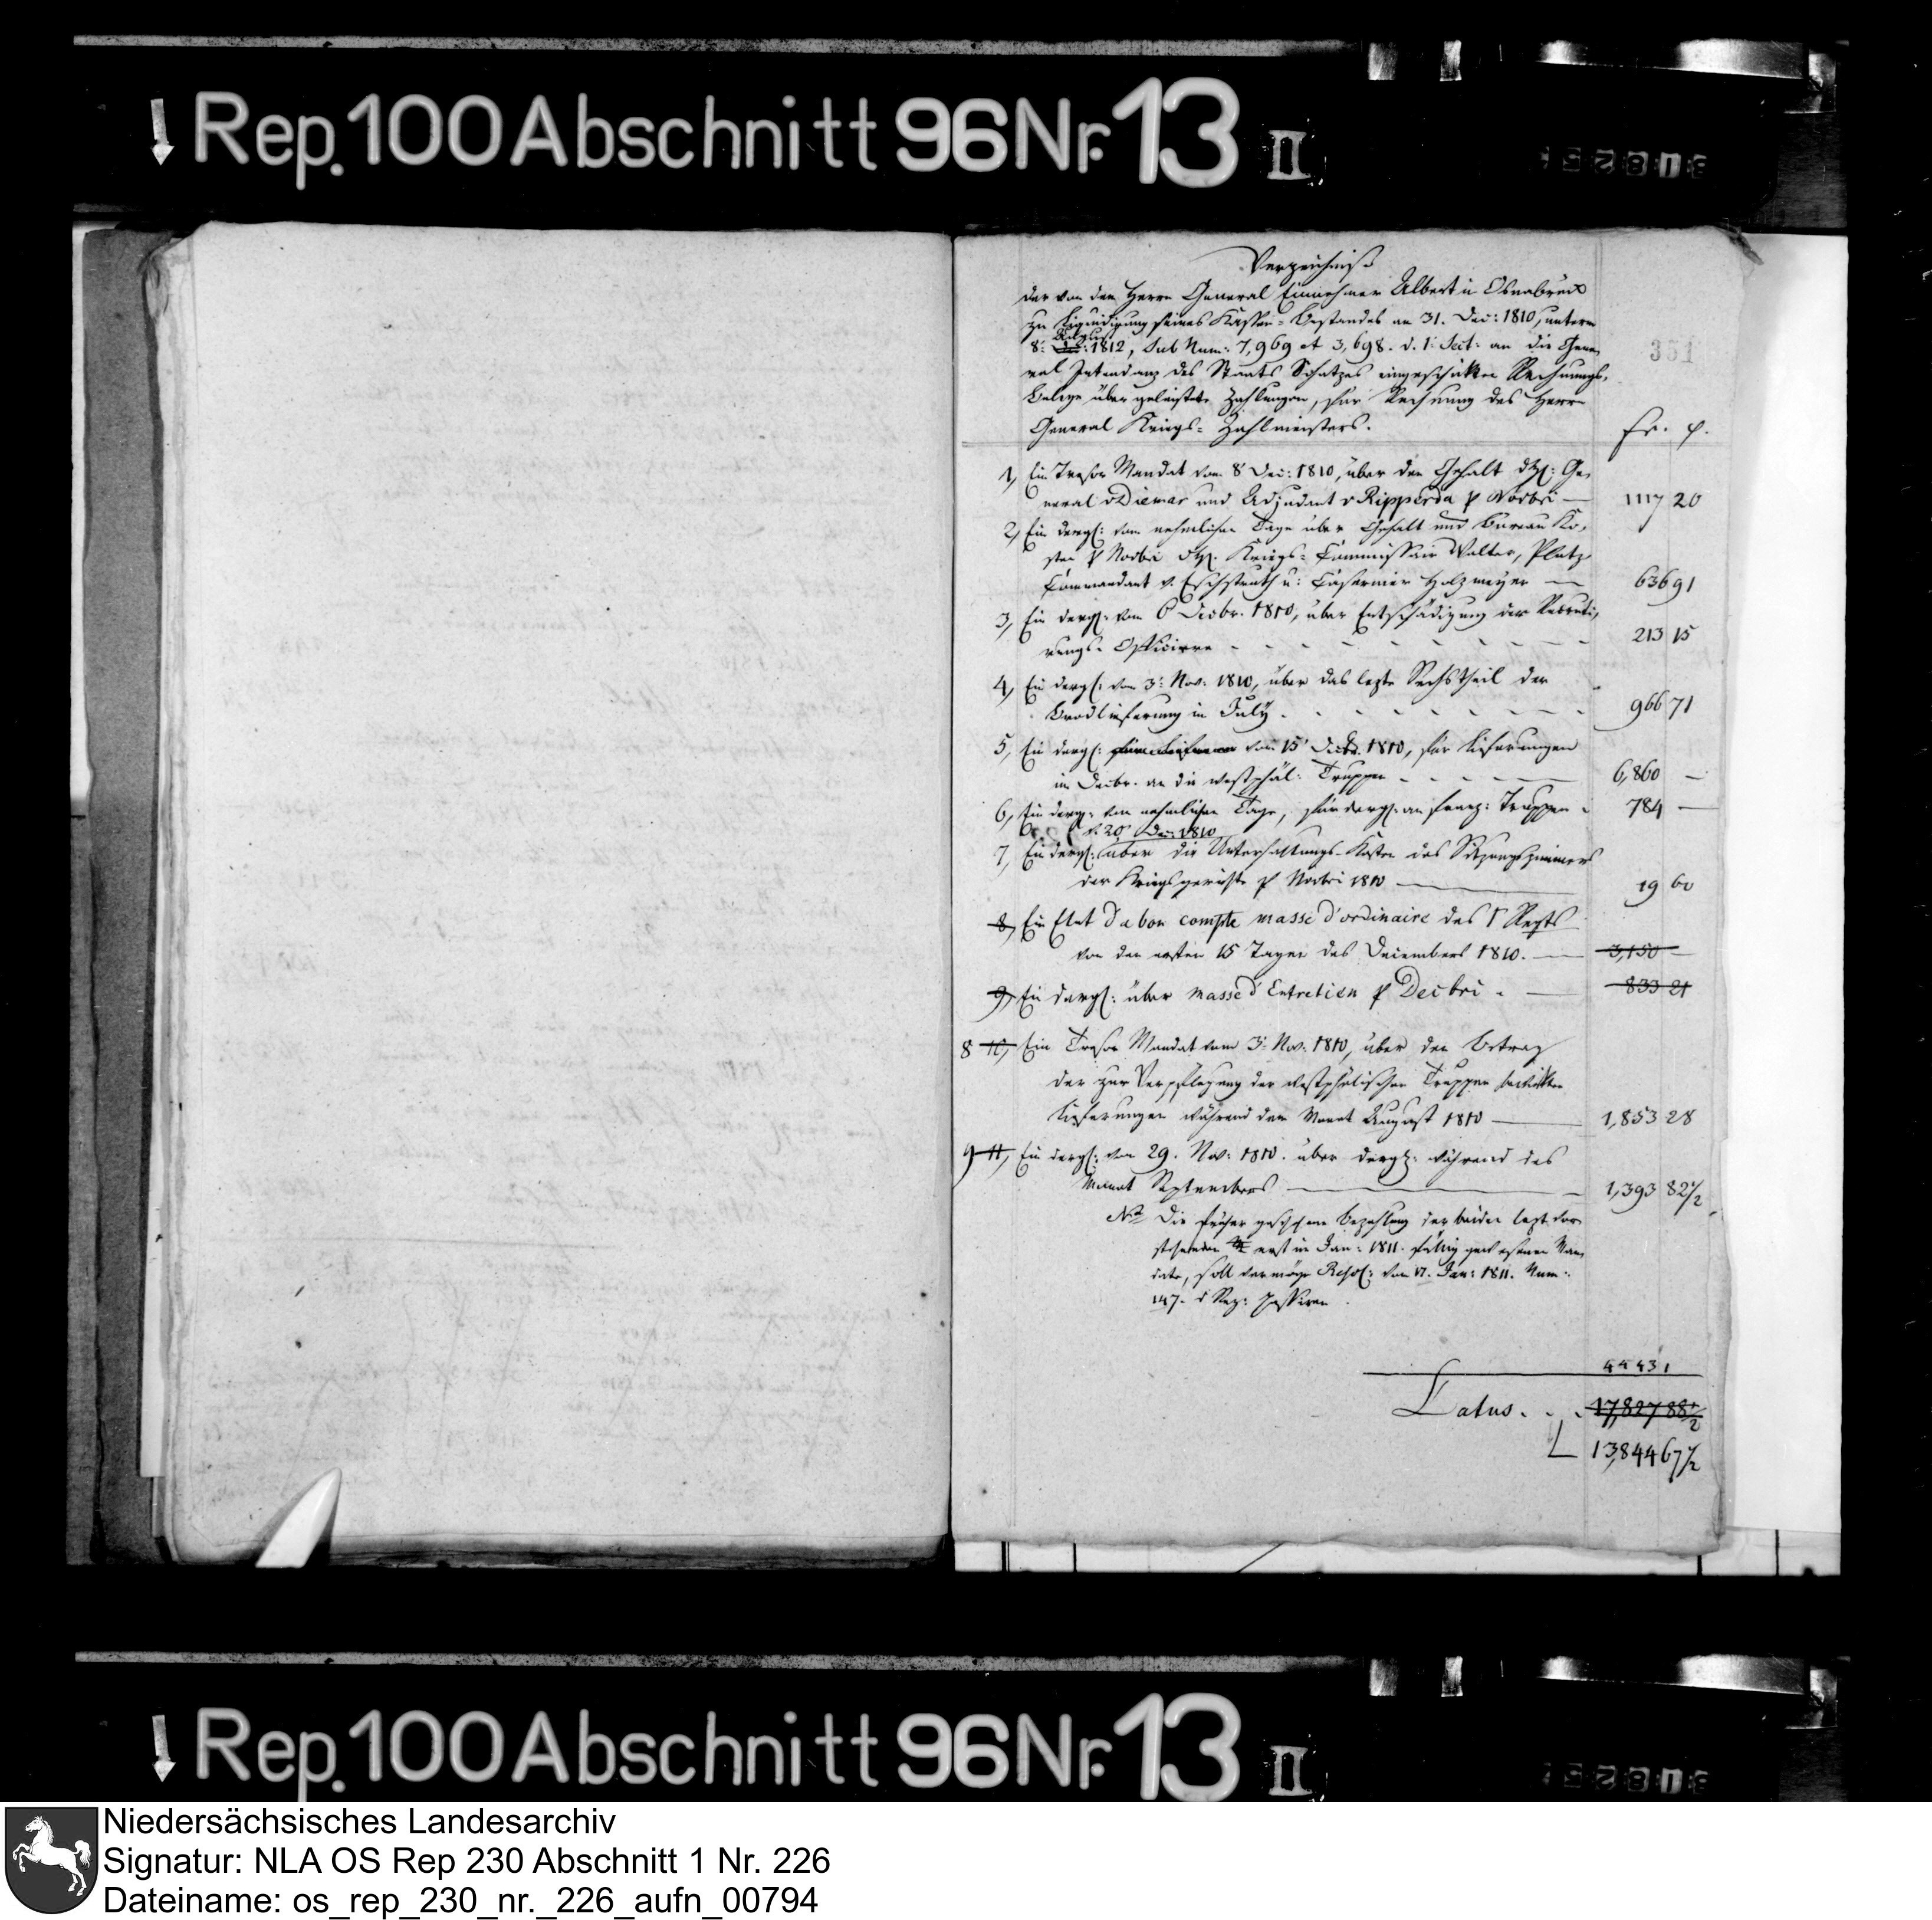 Rep. 100 Abschnitt 96 Nr. 13 II
Verzeichniß
der von dem Herrn General Einnehmer Albert in Osnabrück
zu Liquidirung seines Kassen-Bestandes am 31. Dec: 1810, unterm
August
8. 1812, sub Num: 7,969 et 3,698. d. 1. Sect: an die Gene-
ral Intendanz des Staats Schatzes eingeschickten Rechnungs-
Belege über geleistete Zahlungen, für Rechnung des Herrn
General Kriegs-Zahlmeisters.
351
fr. c.
1, Ein Tresor Mandat vom 8 Dec: 1810, über den Gehalt Ge-
neral v Diemar und Adjudant v Ripperda p Novbri — 1117 20
2, Ein dergl: vom nehmlichen Tage über Gehalt und Bureau Ko-
sten p Novbri Kriegs-Commissair Walter, Platz
Commandant v. Eschstruth u: Casernier Holzmeyer — 636 91
3, Ein dergl: vom 6 Decbr. 1810, über Entschädigung der Recruti-
rungs-Officiere - - - 213 15
4, Ein dergl: vom 3: Nov: 1810, über das lezte Sechstheil der
Brodlieferung in July - - - 966 71
5, Ein dergl: vom 15' Decbr. 1810, für Lieferungen
im Decbr. an die westphäl: Truppen - - - 6,860 —
6, Ein dergl: vom nehmlichen Tage, für dergl. an franz: Truppen - 784 —
v. 20' Dec: 1810
7, Ein dergl: über die Unterhaltungs-Kosten des Sitzungszimmers
der Kriegsgerichte p Novbri 1810 — 19 60
8, Ein Etat d'a bon compte masse d'ordinaire des 1' Regts
von den ersten 15 Tagen des Decembers 1810. — 3,150 —
9, Ein dergl: über masse d'Entretien p Decbri - — 833 21
8 10, Ein Tresor Mandat vom 3: Nov: 1810, über den Betrag
der zur Verpflegung der westphälischen Truppen bewirkten
Lieferungen während dem Monat August 1810 — 1,853 28
9 11, Ein dergl: vom 29. Nov: 1810. über dergl: während des
Monat Septembers — 1,393 82 1/2
NB Die früher geschehene Bezahlung der beiden lezt vor-
stehenden erst im Jan: 1811. fällig gewesenen Man-
date, soll vermöge Resol: vom 17. Jan: 1811. Num:
147. d Rep: passiren.
44 43 1
Latus. . . 17,827 88 1/2
13,844 67 1/2
Rep. 100 Abschnitt 96 Nr. 13 II
Niedersächsisches Landesarchiv
Signatur: NLA OS Rep 230 Abschnitt 1 Nr. 226
Dateiname: os_rep_230_nr._226_aufn_00794